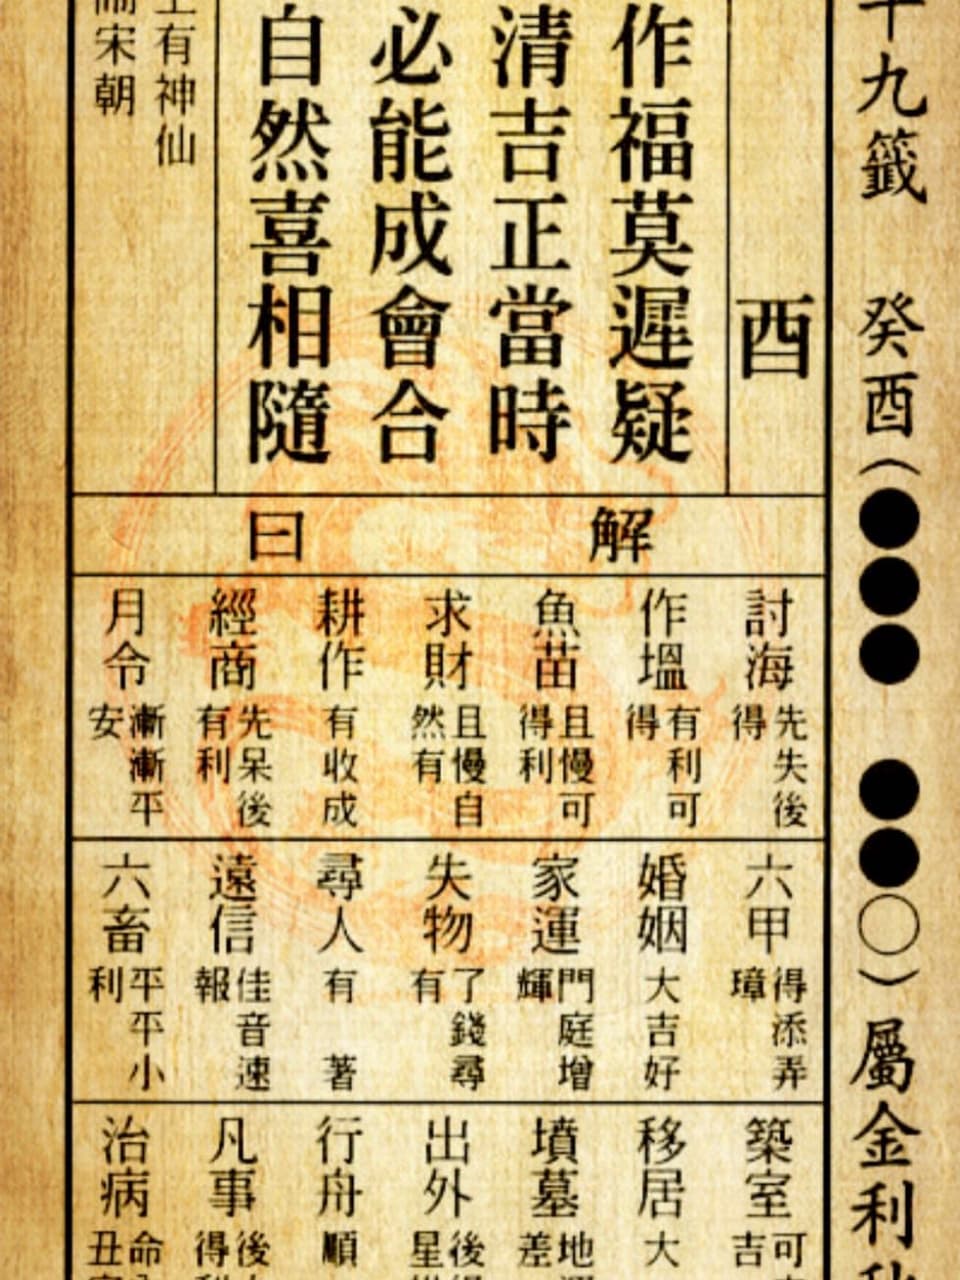 十九籤 癸酉(●●● ●●○)屬金利
酉
作福莫遲疑
清吉正當時
必能成會合
自然喜相隨
有神仙
宋朝
解曰
討海 先失後得
作塭 有利可得
魚苗 且慢可得利
求財 且慢自然有
耕作 有收成
經商 先呆後有利
月令 漸漸平安
六甲 得添弄璋
婚姻 大吉好
家運 門庭增輝
失物 了錢尋有
尋人 有著
遠信 佳音速報
六畜 平平小利
築室 可吉
移居 大
墳墓 地差
出外 後星
行舟 順
凡事 後得
治病 命丑